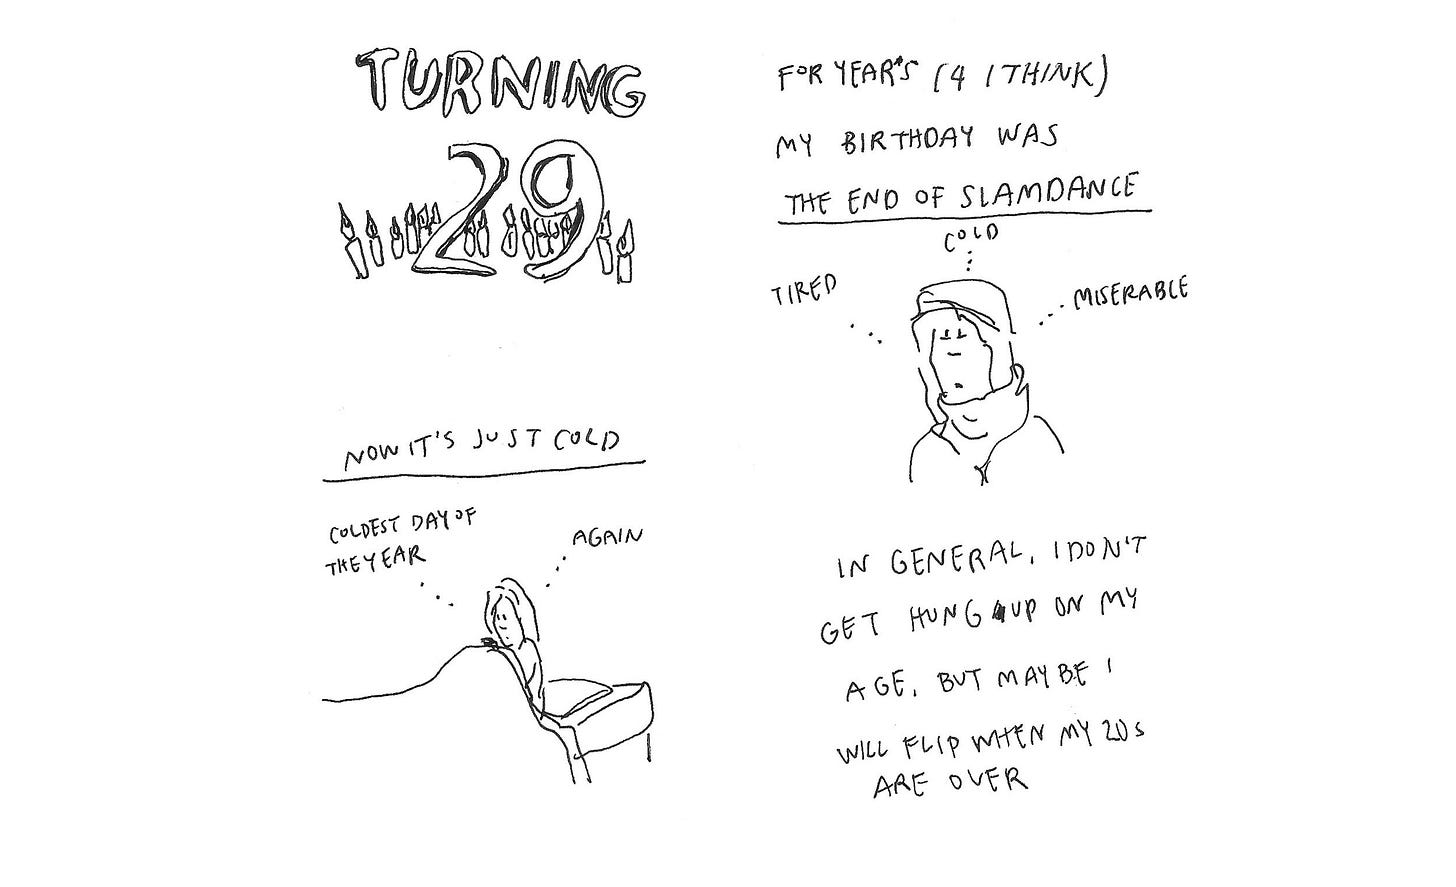 TURNING
29
FOR YEAR'S (4 I THINK)
MY BIRTHDAY WAS
THE END OF SLAMDANCE
COLD
TIRED
MISERABLE
NOW IT'S JUST COLD
COLDEST DAY OF
THE YEAR
AGAIN
IN GENERAL, I DON'T
GET HUNG UP ON MY
AGE, BUT MAYBE I
WILL FLIP WHEN MY 20s
ARE OVER